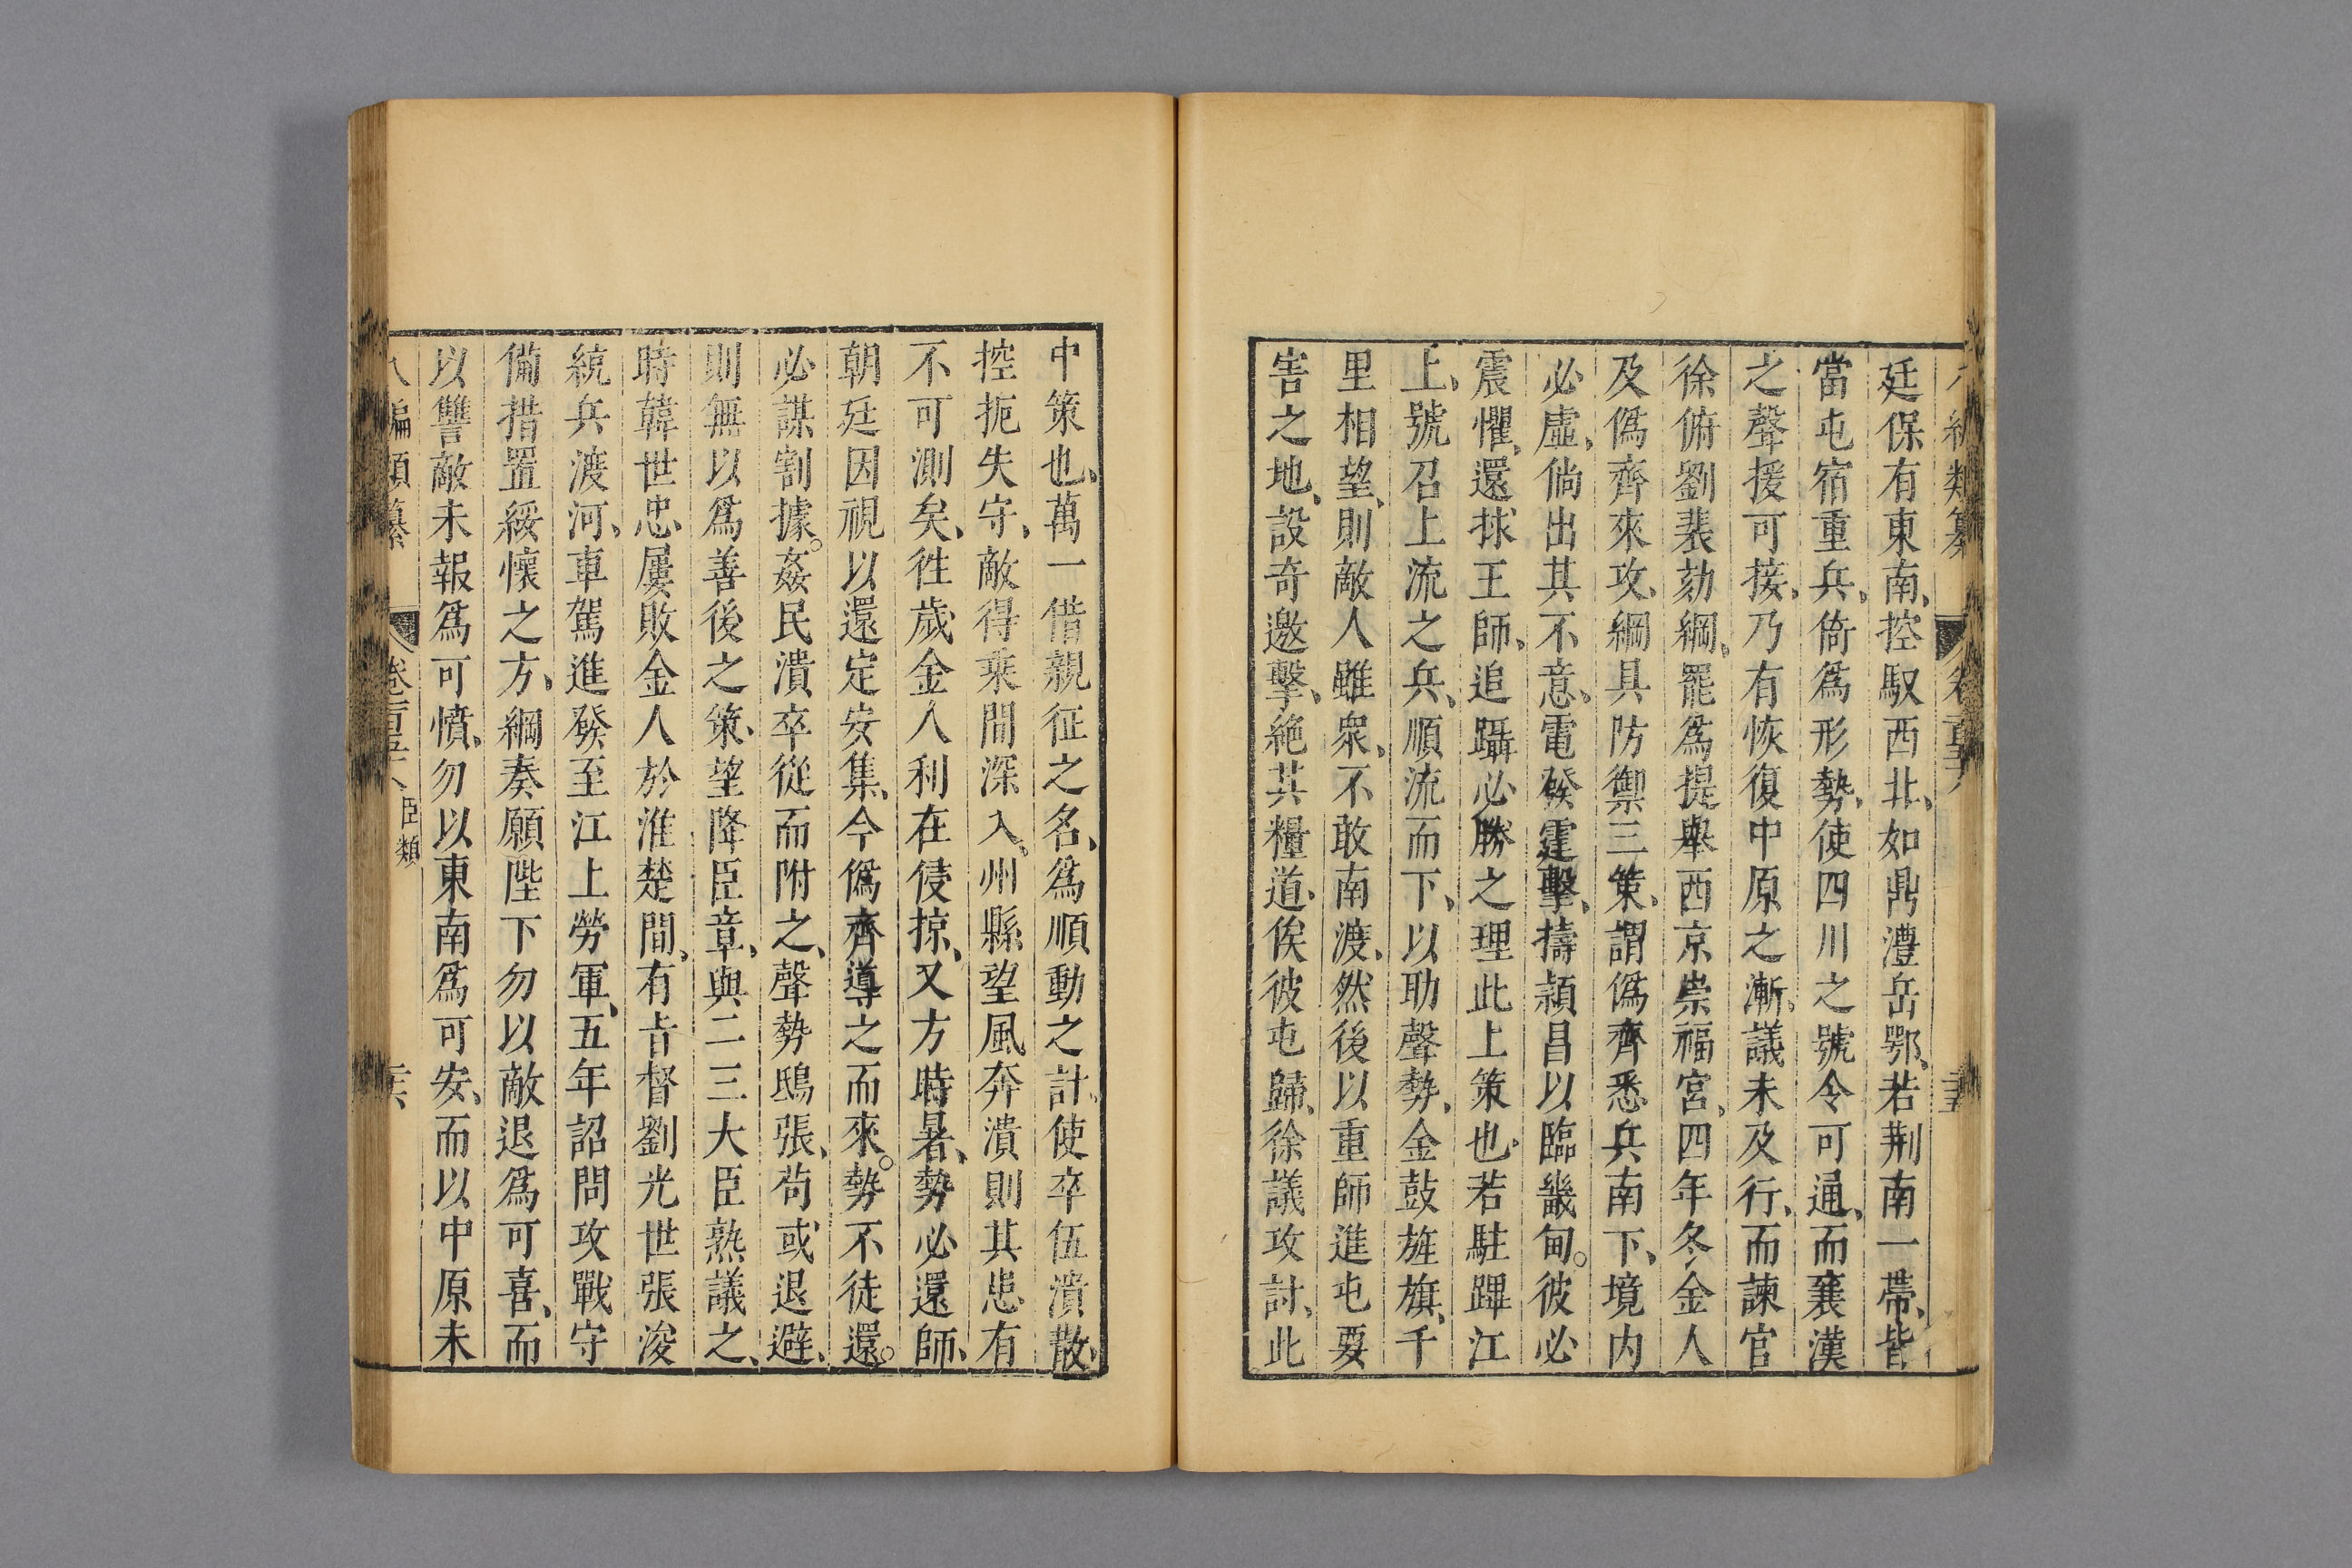 廷保有東南、控馭西北、如鼎澧岳鄂、若荆南一帶、皆
當屯宿重兵、倚爲形勢、使四川之號令可通、而襄漢
之聲援可接、乃有恢復中原之漸、議未及行、而諫官
徐俯劉裴劾綱、罷爲提舉西京崇福宮、四年冬、金人
及僞齊來攻、綱具防禦三策、謂僞齊悉兵南下、境内
必虛、倘出其不意、電發霆擊、擣潁昌以臨畿甸。彼必
震懼、還捄王師、追躡必勝之理此上策也、若駐蹕江
上、號召上流之兵、順流而下、以助聲勢、金鼓旌旗、千
里相望、則敵人雖衆、不敢南渡、然後以重師進屯要
害之地、設奇邀擊、絶其糧道、俟彼屯歸、徐議攻討、此
中策也、萬一借親征之名、爲順動之計、使卒伍潰散、
控扼失守、敵得乘間深入、州縣望風奔潰則其患有
不可測矣、徃歲金人利在侵掠、又方時暑、勢必還師、
朝廷因視以還定安集、今僞齊導之而來。勢不徒還。
必謀割據。姦民潰卒從而附之、聲勢鴟張、茍或退避、
則無以爲善後之策、望降臣章、與二三大臣熟議之、
時韓世忠、屢敗金人於淮楚間、有㫖督劉光世張浚
統兵渡河、車駕進發至江上勞軍、五年詔問攻戰守
備措置綏懷之方、綱奏願陛下勿以敵退爲可喜、而
以讐敵未報爲可憤、勿以東南爲可安、而以中原未
編類纂 卷 臣類